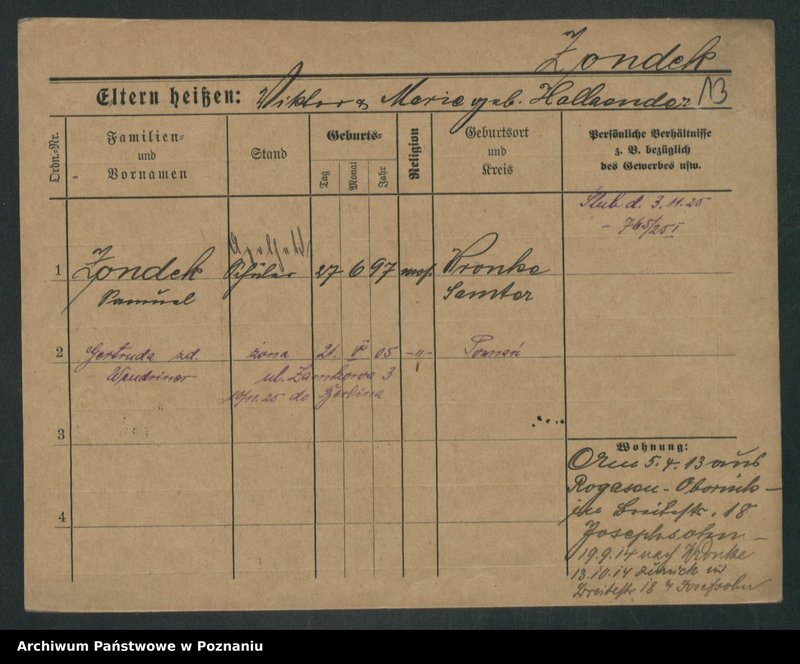 Zondek
Eltern heißen: Viktor u Marie geb. Hallaender
13
Ordn.-Nr.
Familien-
und
Vornamen
Stand
Geburts-
Tag
Monat
Jahr
Religion
Geburtsort
und
Kreis
Persönliche Verhältnisse
z. B. bezüglich
des Gewerbes usw.
Ślub d. 3.11.25
- 765/25 I
1 Zondek Schüler 27 6 97 mos. Wronke
Samuel Samter
2 Gertruda zd. żona 21. V 05 -"- Poznań
Wendriner ul. Zamkowa 3
19/11.25 do Berlina
3
4
Wohnung:
Am 5.4.13 aus
Rogasen-Obornik-
in Breitestr. 18
Josephsohn-
19.9.14 nach Wronke
13.10.14 zurück in
Breitestr 18 b Josefsohn
Archiwum Państwowe w Poznaniu